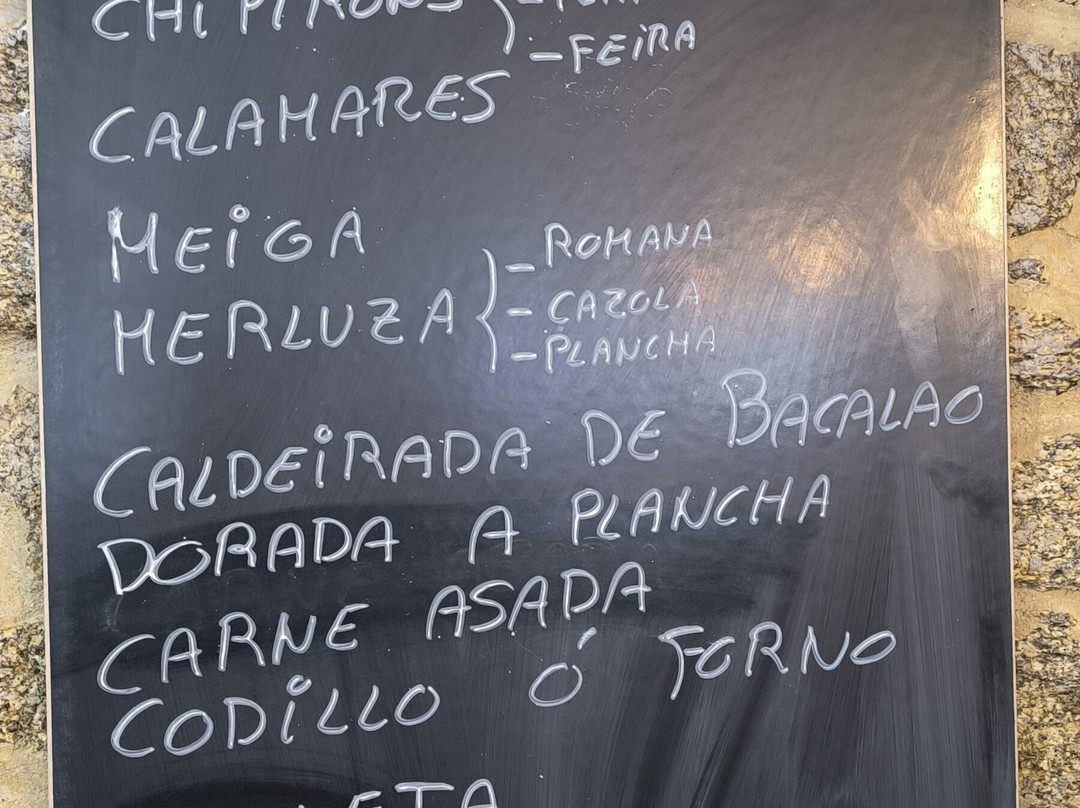 CHIPIRÓNS
- FEIRA
CALAMARES
MEIGA
MERLUZA { - ROMANA
- CAZOLA
- PLANCHA
CALDEIRADA DE BACALAO
DORADA A PLANCHA
CARNE ASADA
CODILLO Ó FORNO